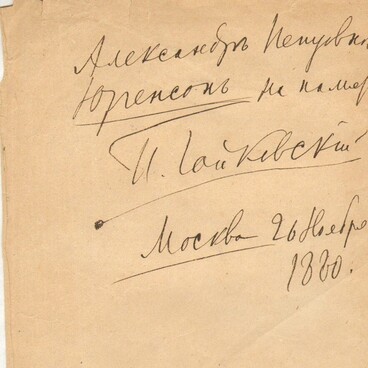 Александръ Петровнѣ
Юргенсонъ на памят
П. Чайковскій
Москва 26 Ноября
1880.